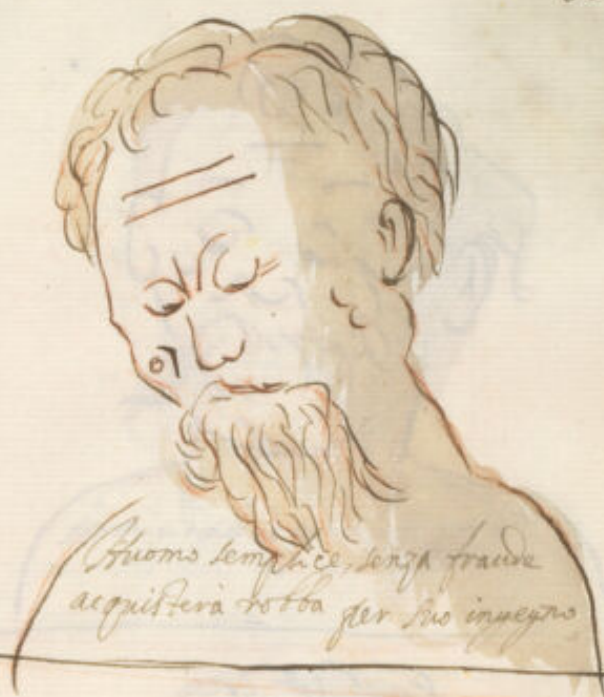 Huomo semplice, senza fraude
acquisterà robba per suo ingegno